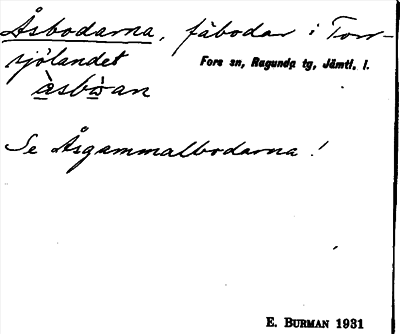 Åsbodarna, fäbodar i Torr-
sjölandet Fors sn, Ragunda tg, Jämtl. l.
Se Åsgammalbodarna!
E. BURMAN 1931